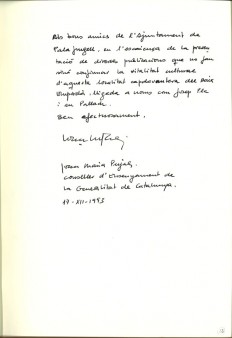 Als bons amics de l'Ajuntament de
Palafrugell, en l'escaiença de la presen-
tació de diverses publicacions que no fan
sinó confirmar la vitalitat cultural
d'aquesta localitat capdavantera del Baix
Empordà, lligada a noms com Josep Pla
i en Pallach.
Ben afectuosament,
Joan Maria Pujals,
conseller d'Ensenyament de
la Generalitat de Catalunya.
17-XII-1993